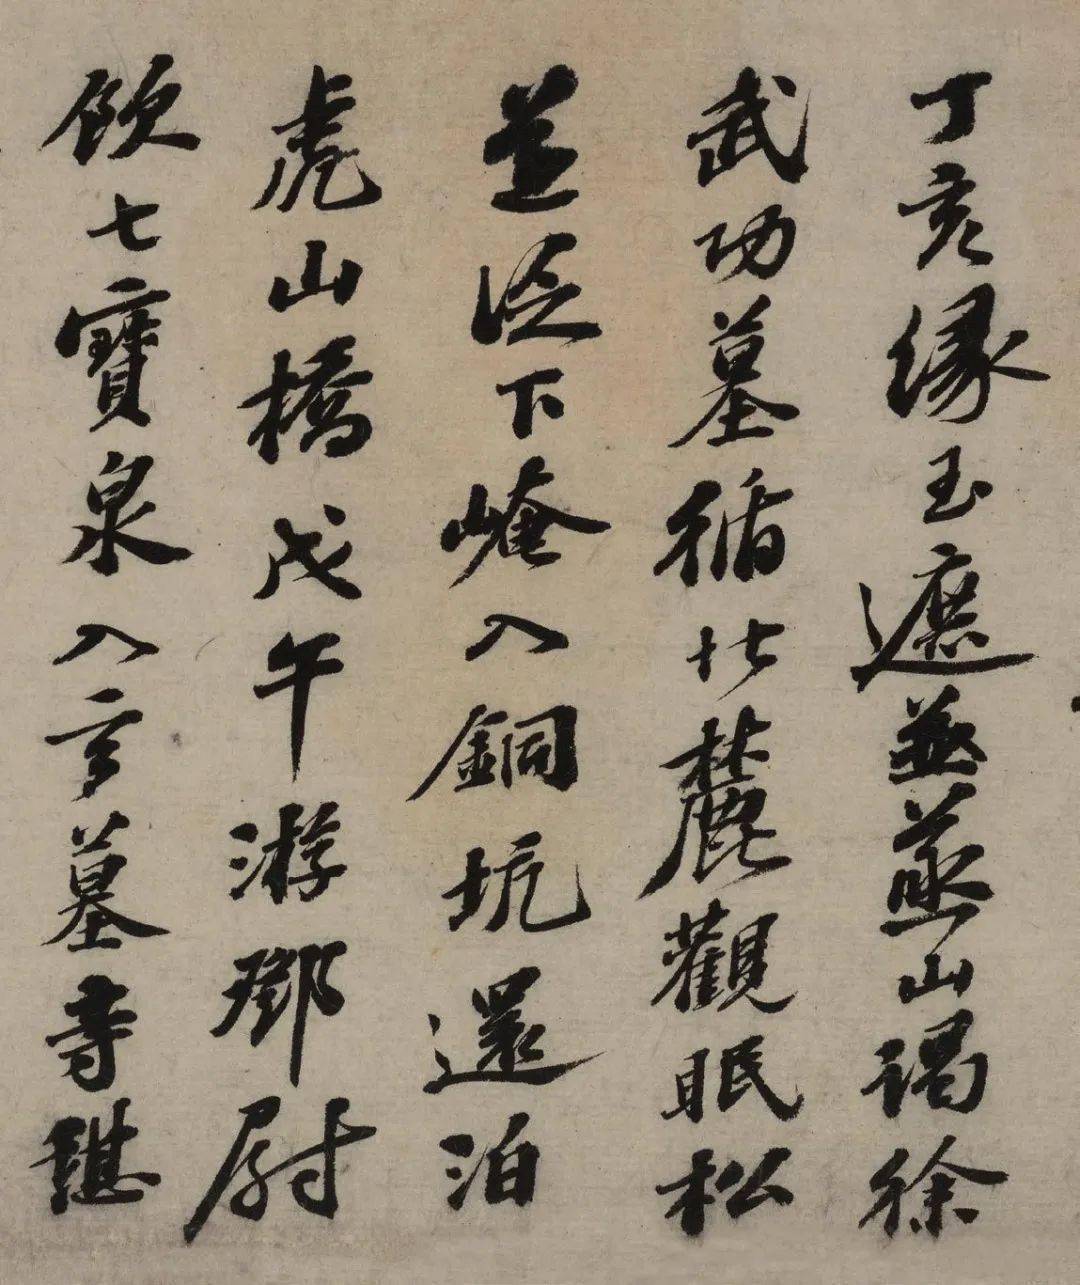 丁亥緣玉遮並蒸山謁徐
武功墓循北麓觀眠松
並下崦入銅坑還泊
虎山橋戊午游鄧尉
飲七寶泉入玄墓寺